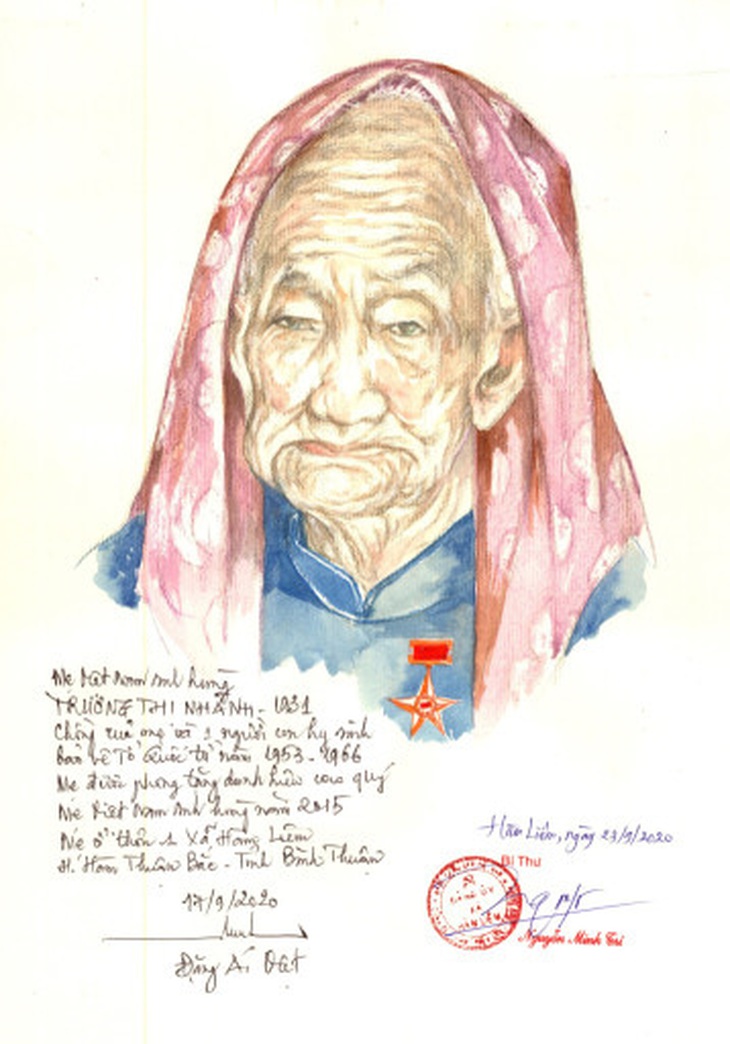 Mẹ Việt Nam Anh hùng
TRƯƠNG THỊ NHÃNH - 1931
Chồng của mẹ và 1 người con hy sinh
bảo vệ Tổ Quốc từ năm 1953 - 1966
Mẹ được phong tặng danh hiệu cao quý
Mẹ Việt Nam Anh hùng năm 2015
Mẹ ở thôn 1 Xã Hồng Liêm
H. Hàm Thuận Bắc - Tỉnh Bình Thuận
17/9/2020
Đặng Ái Việt
Liêm, ngày 23/9/2020
Bí Thư
Nguyễn Minh Trí